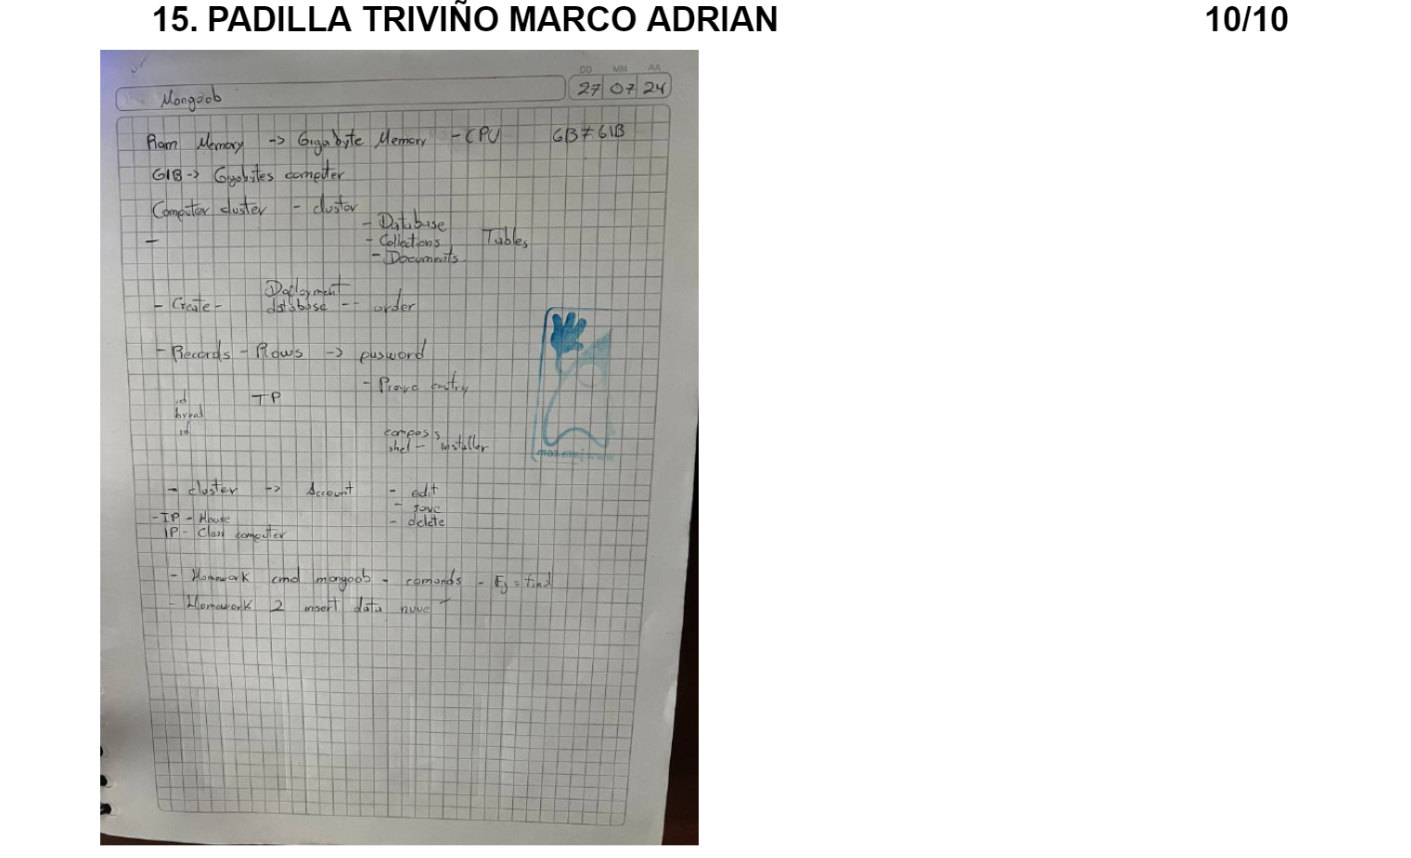 15. PADILLA TRIVIÑO MARCO ADRIAN 10/10
DD MM AA
27 07 24
Mongoob
Ram Memory -> Gigabyte Memory - CPU GB≠GIB
GIB -> Gigabites computer
Computer cluster - cluster
- Database
- Collections Tables
- Documents
-
Deployment
- Create - database -- order
- Records - Rows -> pusword
- entry
id TP
id
shel - installer
- cluster -> Account - edit
- save
- delete
- IP - House
IP - Class computer
- Homework cmd mongoob - comands - Ej = find
- Homework 2 insert data